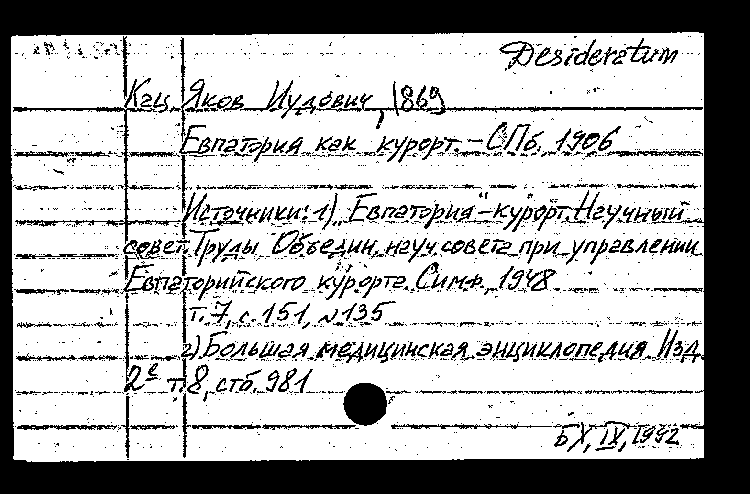 Desideratum
Кац, Яков Иудович, 1869
Евпатория как курорт. – СПб, 1906
Источники: 1) „Евпатория" – курорт. Научный
совет. Труды Объедин. науч. совета при управлении
Евпаторийского курорта. Симф., 1948
т. 7, с. 151, №135
2) Большая медицинская энциклопедия. Изд.
2е т. 8, стб. 981
БХ, IX, 1992